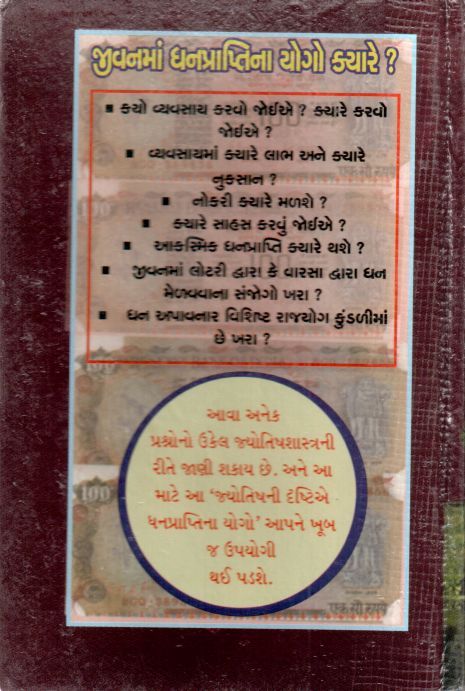 જીવનમાં ધનપ્રાપ્તિના યોગો ક્યારે ?
▪ ક્યો વ્યવસાય કરવો જોઈએ ? ક્યારે કરવો
જોઈએ ?
▪ વ્યવસાયમાં ક્યારે લાભ અને ક્યારે
નુકસાન ?
▪ નોકરી ક્યારે મળશે ?
▪ ક્યારે સાહસ કરવું જોઈએ ?
▪ આકસ્મિક ધનપ્રાપ્તિ ક્યારે થશે ?
▪ જીવનમાં લોટરી દ્વારા કે વારસા દ્વારા ધન
મેળવવાના સંજોગો ખરા ?
▪ ધન અપાવનાર વિશિષ્ટ રાજયોગ કુંડળીમાં
છે ખરા ?
આવા અનેક
પ્રશ્નોનો ઉકેલ જ્યોતિષશાસ્ત્રની
રીતે જાણી શકાય છે. અને આ
માટે આ ‘જ્યોતિષની દૃષ્ટિએ
ધનપ્રાપ્તિના યોગો’ આપને ખૂબ
જ ઉપયોગી
થઈ પડશે.
100
100
एक सौ रुपये